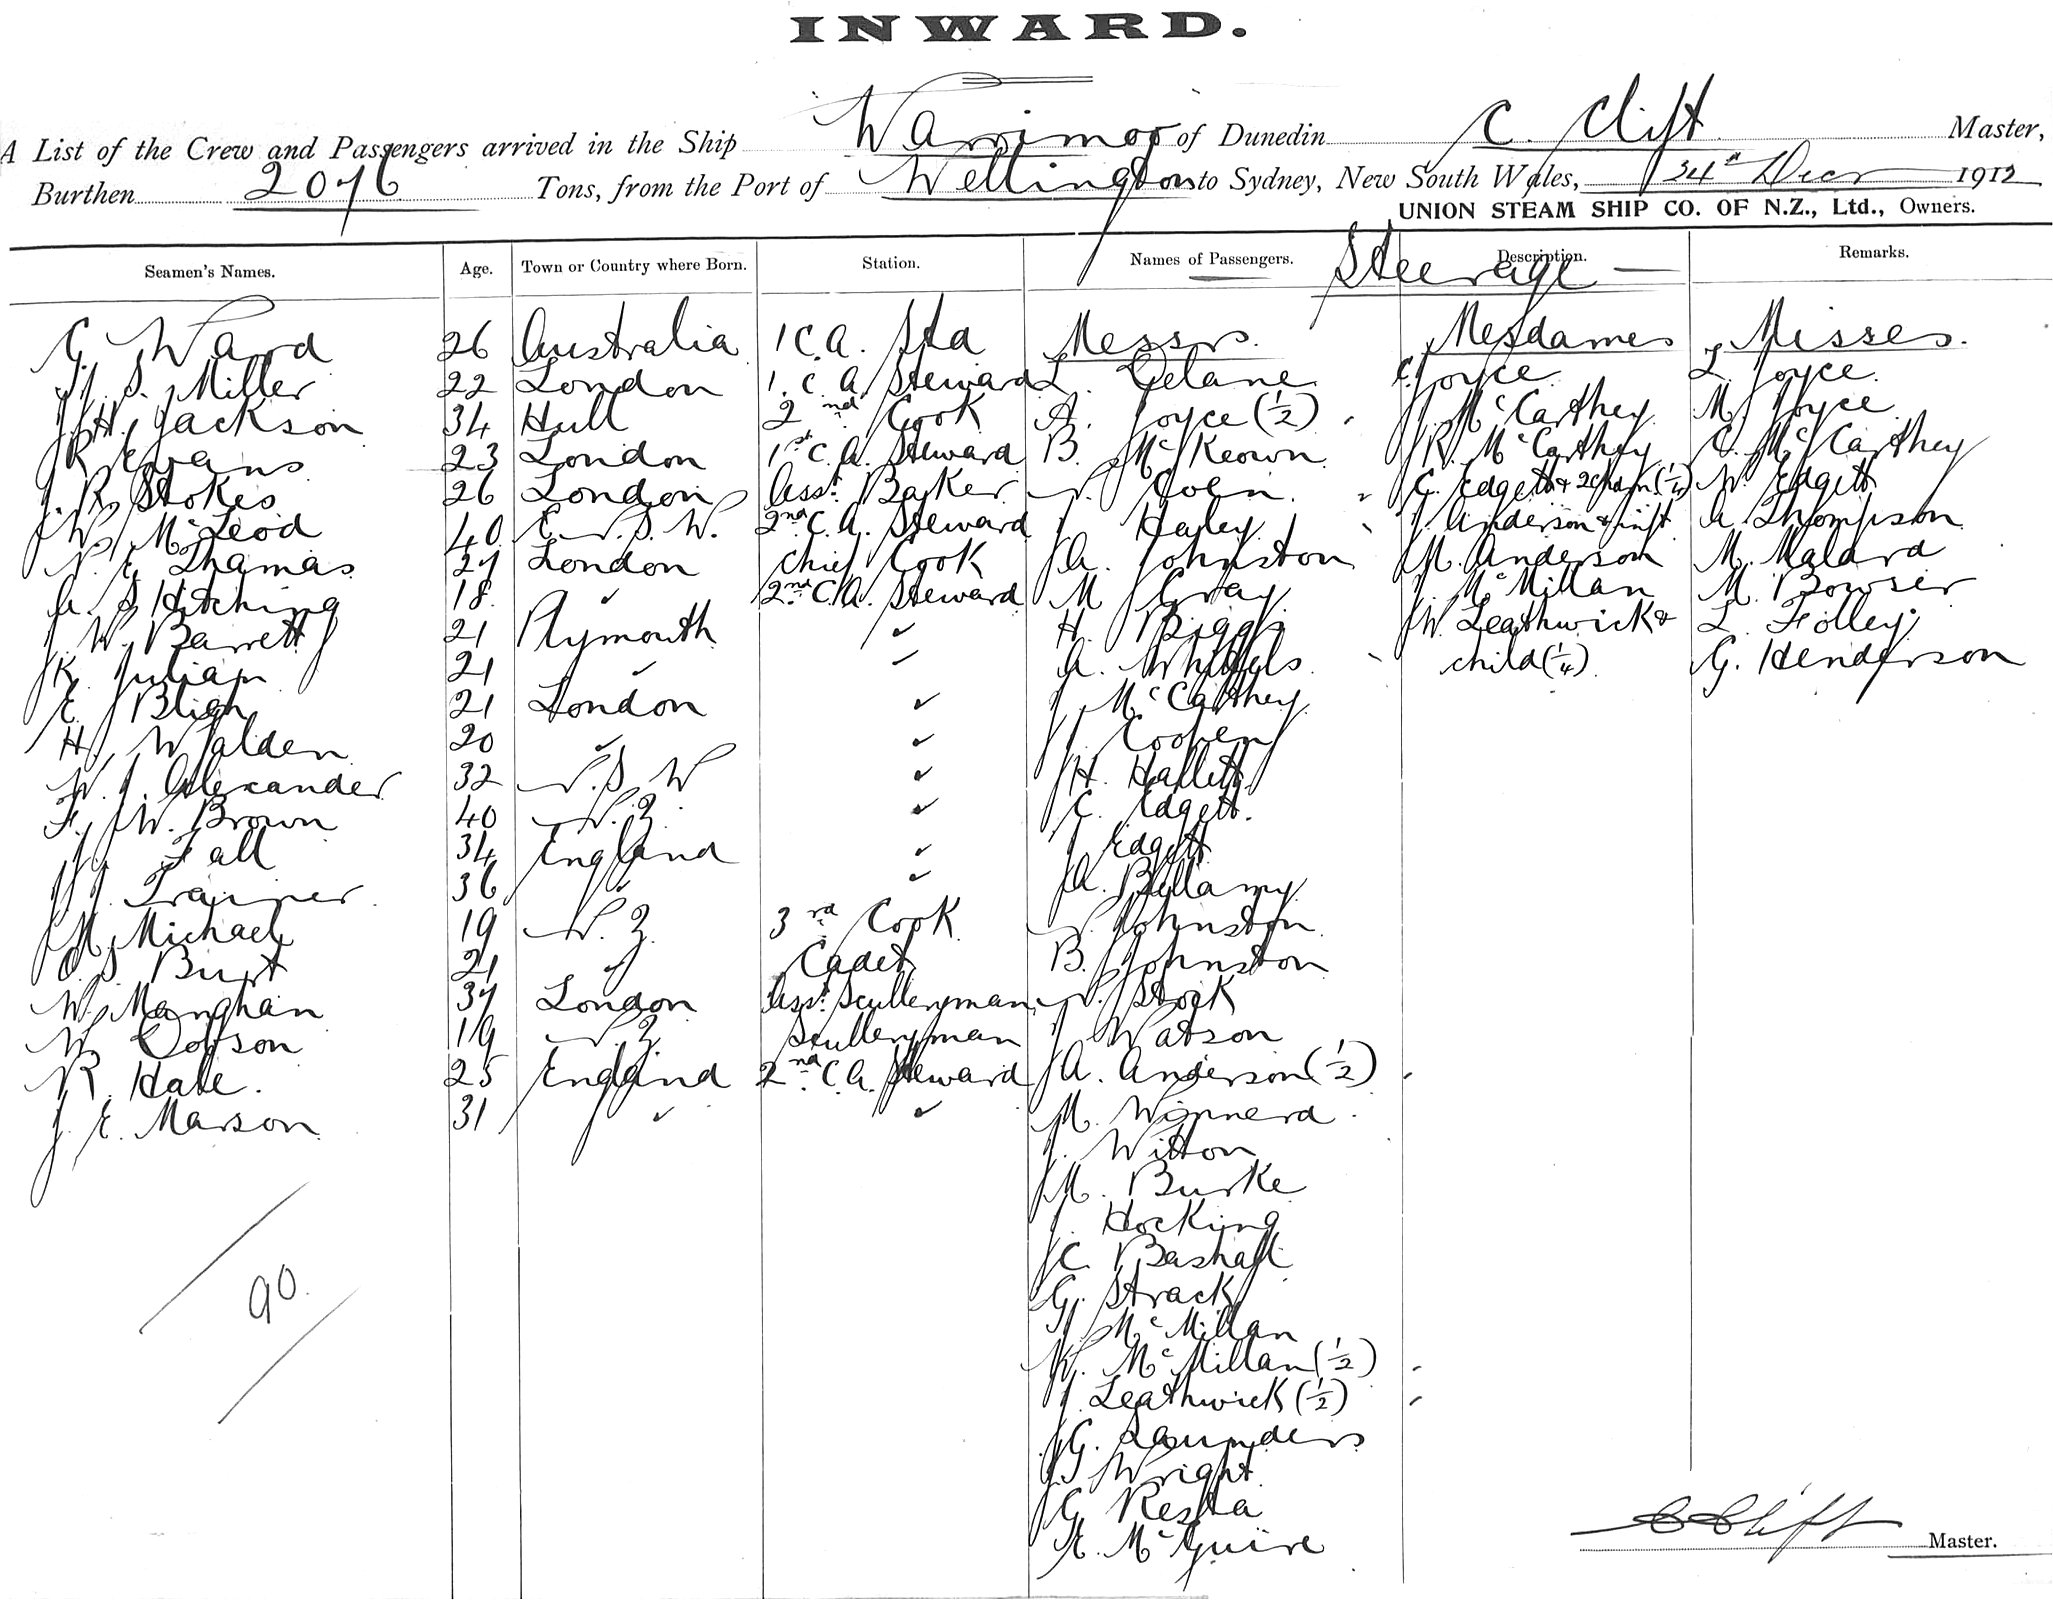 INWARD.
A List of the Crew and Passengers arrived in the Ship Warrimoo of Dunedin C. Clift Master,
Burthen 2076 Tons, from the Port of Wellington to Sydney, New South Wales, 24th Decr 1912
UNION STEAM SHIP CO. OF N.Z., Ltd., Owners.
Seamen's Names. Age. Town or Country where Born. Station. Names of Passengers. Description. Remarks.
Steerage
Ward 26 Australia 1 C.A. Sta Messrs. Mesdames Misses.
S. Miller 22 London 1. C. A. Steward L. Delane Joyce L. Joyce
H. Jackson 34 Hull 2nd Cook A. Joyce (1/2) McCarthey M. Joyce
R. Evans 23 London 1st C. A. Steward B. McKeown R. McCarthey C. McCarthey
J. R. Stokes 26 London Asst. Baker N. G. Edgett & 2 (1/4) N. Edgett
W. McLeod 40 N. S. W. 2nd C. A. Steward J. Hayley J. Anderson & inft A. Thompson
N. E. Thamas 27 London Chief Cook A. Johnston M. Anderson M. Malard
A. S. Hitching 18 ✓ 2nd C. A. Steward M. Gray J. McMillan M. Bowser
J. W. Barrett 21 Plymouth ✓ H. Briggs W. Leathwick & L. Folley
K. Julian 21 ✓ ✓ A. child (1/4) G. Henderson
E. Bligh 21 London ✓ J. McCarthey
H. Walden 20 ✓ ✓ J. Cooper
W. J. Alexander 32 N. S. W ✓ H. Hallett
F. W. Brown 40 N. Z. ✓ C. Edgett.
J. Fall 34 England ✓ J. Edgett
J. Trainer 36 ✓ ✓ A. Bellamy
M. Michael 19 N. Z. 3rd Cook N. Johnston
O. S. Burt 21 ✓ Cadet B. Johnston
W. Manghan 37 London Asst. Sculleryman N. Stock
W. Dobson 19 N. Z. Sculleryman J. Watson
R. Hale. 25 England 2nd C. A. Steward A. Anderson (1/2)
J. E. Marson 31 ✓ ✓ M. Winnerd
J. Witton
M. Burke
J. Hocking
C. Bashall
G. Strack
J. McMillan
W. McMillan (1/2)
J. Leathwick (1/2)
G. Saunders
J. Wright
G. Resta
A. McGuire
90.
C Clift Master.